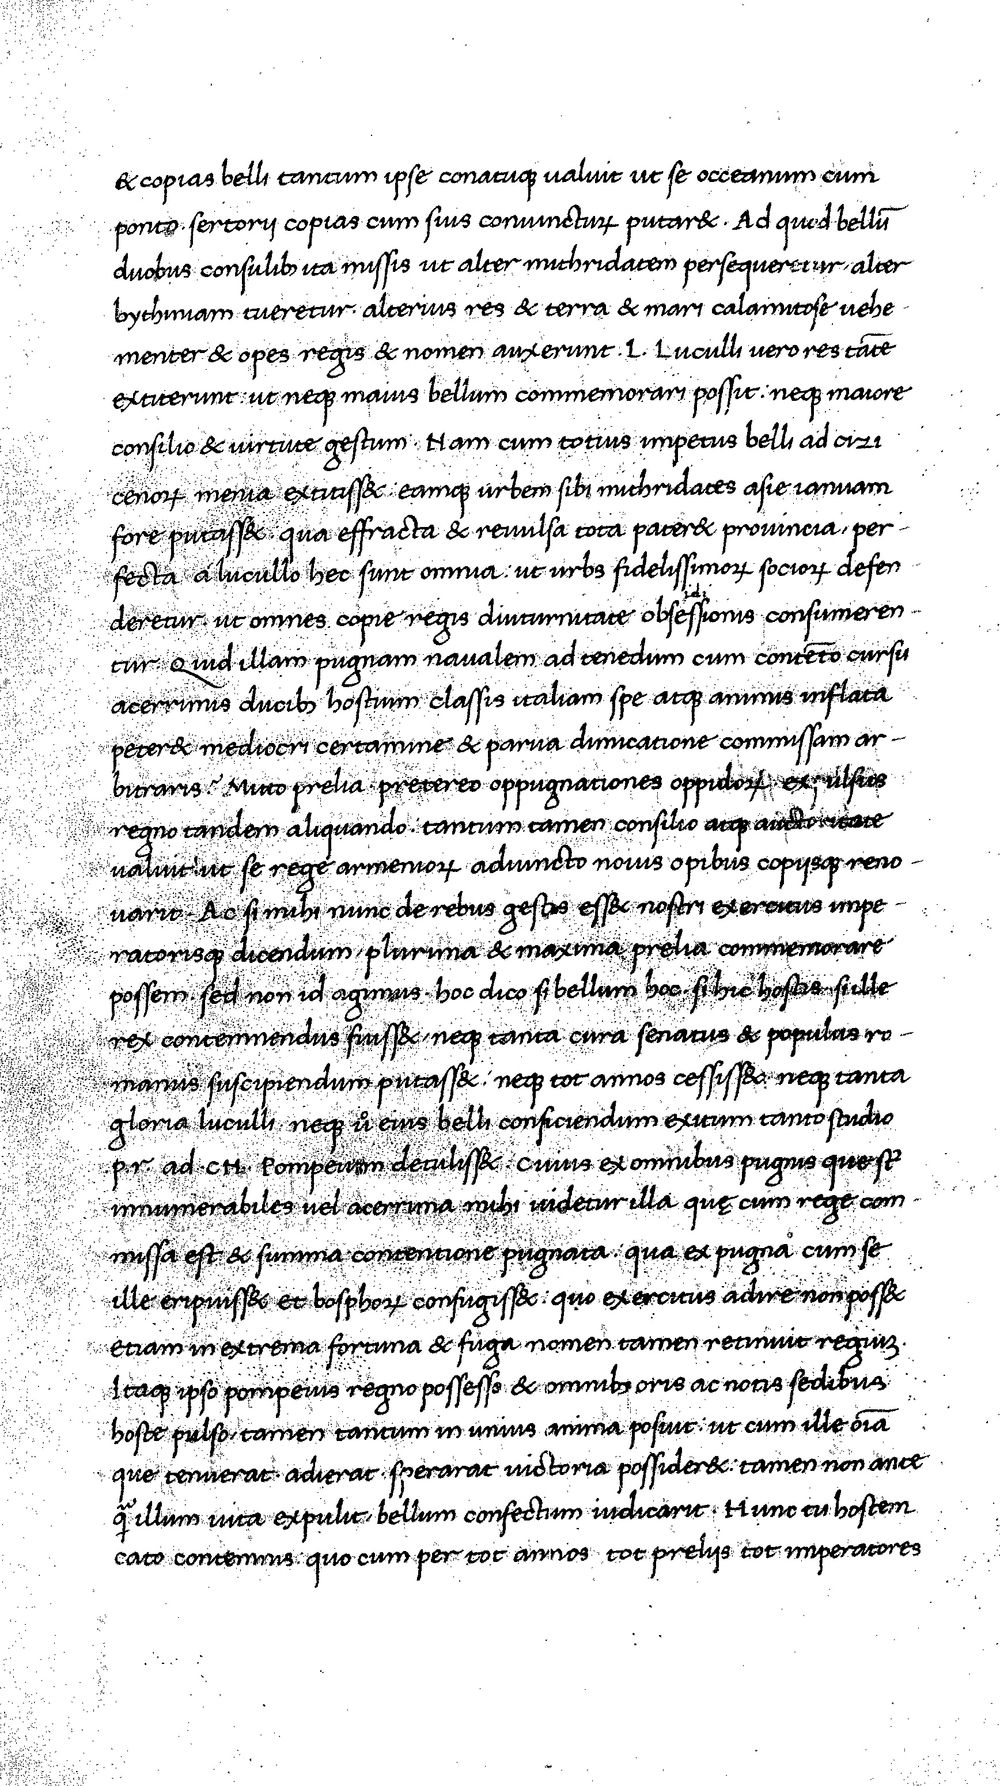 & copias belli tantum ipse conatuq; ualuit ut se occeanum cum
ponto sertorii copias cum suis coniuncturꝝ putar&. Ad quod bellū
duobus consulibꝫ ita missis ut alter mithridatem persequeretur, alter
bythiniam tueretur. alterius res & terra & mari calamitose uehe-
menter & opes regis & nomen auxerunt. L. Luculli uero res tāte
extiterunt: ut neq; maius bellum commemorari possit: neq; maiore
consilio & uirtute gestum. Nam cum totius impetus belli ad cizi
cenoꝝ menia extitiss&. eamq; urbem sibi mithridates asie ianuam
fore putass&. qua effracta & reuulsa tota pater& prouincia, per-
fecta a lucullo hec sunt omnia: ut urbs fidelissimoꝝ socioꝝ defen
deretur. ut omnes copie regis diuturnitate obsessionis consumeren-
tur. Quid illam pugnam naualem ad tenedum cum contēto cursu
acerrimis ducibꝫ hostium classis italiam spe atq; animis inflata
peter& mediocri certamine & parua dimicatione commissam ar-
bitraris? Mitto prelia. pretereo oppugnationes oppidoꝝ. expulsus
regno tandem aliquando. tantum tamen consilio atq; auctoritate
ualuit: ut se rege armenioꝝ adiuncto nouis opibus copijsq; reno-
uarit. Ac si mihi nunc de rebus gestis ess& nostri exercitus impe-
ratorisq; dicendum, plurima & maxima prelia commemorare
possem. sed non id agimus. hoc dico si bellum hoc. si hic hostis. si ille
rex contemnendus fuiss&, neq; tanta cura senatus & populus ro-
manus suscipiendum putass&: neq; tot annos cessiss&. neq; tanta
gloria luculli. neq; ů eius belli conficiendum exitum tanto studio
p. r. ad CN. Pompeium detuliss&. Cuius ex omnibus pugnis que st̄
innumerabiles uel acerrima mihi uidetur illa quę cum rege com-
missa est & summa contentione pugnata. qua ex pugna cum se
ille eripuiss& et bosphoꝝ confugiss&. quo exercitus adire non poss&
etiam in extrema fortuna & fuga nomen tamen retinuit regiuꝫ.
Itaq; ipso pompeius regno possesso & omnibꝫ oris ac notis sedibus
hoste pulso, tamen tantum in unius anima posuit: ut cum ille oīa
que tenuerat. adierat. sperarat uictoria possider&. tamen non ante
q̄ illum uita expulit, bellum confectum iudicarit. Hunc tu hostem
cato contemnis. quo cum per tot annos tot prelijs tot imperatores